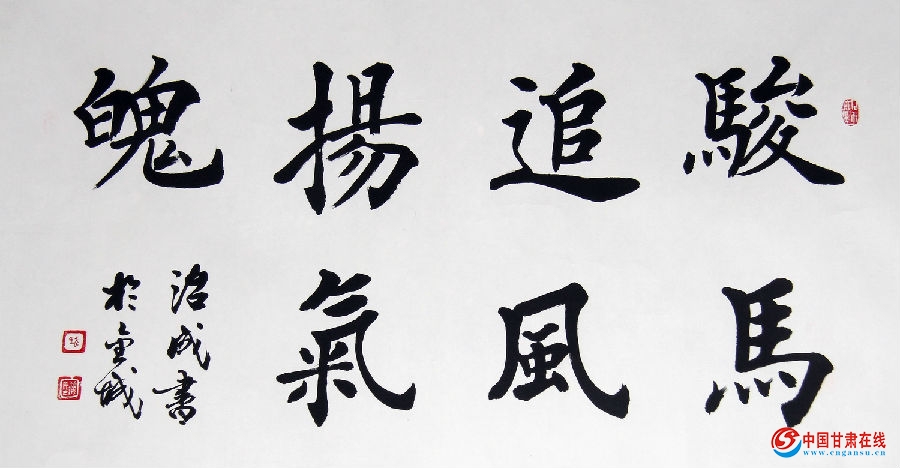 駿馬
追風
揚氣
魄
治成書
於金城
中国甘肃在线
www.cngansu.cn